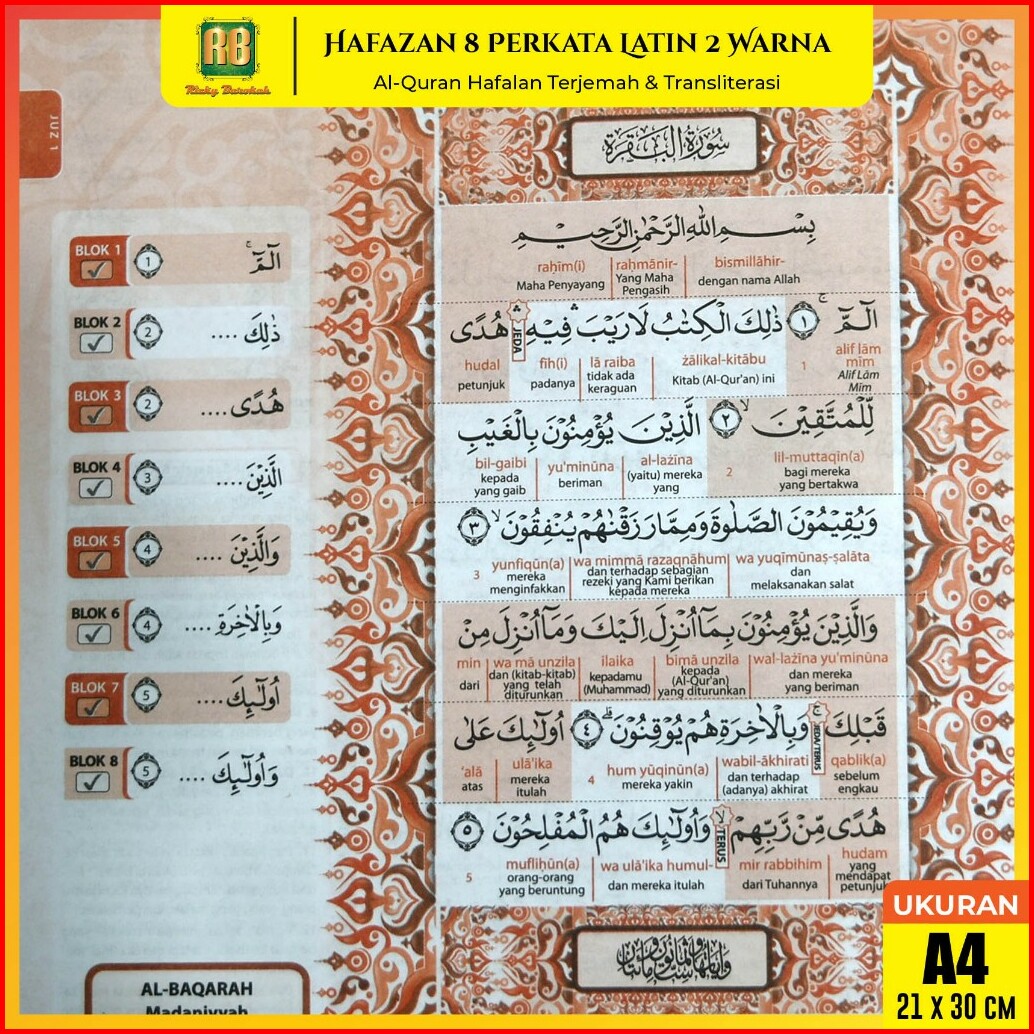 RB
Rizky Barokah
HAFAZAN 8 PERKATA LATIN 2 WARNA
Al-Quran Hafalan Terjemah & Transliterasi
JUZ 1
سُورَةُ الْبَقَرَةِ
BLOK 1
الۤمّۤ ۚ ١
BLOK 2
ذٰلِكَ .... ٢
BLOK 3
هُدًى.... ٢
BLOK 4
الَّذِيْنَ .... ٣
BLOK 5
وَالَّذِيْنَ .... ٤
BLOK 6
وَبِالْاٰخِرَةِ .... ٤
BLOK 7
اُولٰۤىِٕكَ.... ٥
BLOK 8
وَاُولٰۤىِٕكَ .... ٥
AL-BAQARAH
Madaniyyah
بِسْمِ اللّٰهِ الرَّحْمٰنِ الرَّحِيْمِ
bismillāhir- raḥmānir- raḥīm(i)
dengan nama Allah Yang Maha Pengasih Maha Penyayang
الۤمّۤ ۚ ١ ذٰلِكَ الْكِتٰبُ لَا رَيْبَ ۛ فِيْهِ ۛ هُدًى
JEDA
alif lām mīm 1 żālikal-kitābu lā raiba fīh(i) hudal
Alif Lām Mīm Kitab (Al-Qur'an) ini tidak ada keraguan padanya petunjuk
لِّلْمُتَّقِيْنَۙ ٢ الَّذِيْنَ يُؤْمِنُوْنَ بِالْغَيْبِ
lil-muttaqīn(a) 2 al-lażīna yu'minūna bil-gaibi
bagi mereka yang bertakwa (yaitu) mereka yang beriman kepada yang gaib
وَيُقِيْمُوْنَ الصَّلٰوةَ وَمِمَّا رَزَقْنٰهُمْ يُنْفِقُوْنَۙ ٣
wa yuqīmūnaṣ-ṣalāta wa mimmā razaqnāhum yunfiqūn(a) 3
dan melaksanakan salat dan terhadap sebagian rezeki yang Kami berikan kepada mereka mereka menginfakkan
وَالَّذِيْنَ يُؤْمِنُوْنَ بِمَآ اُنْزِلَ اِلَيْكَ وَمَآ اُنْزِلَ مِنْ
wal-lażīna yu'minūna bimā unzila ilaika wa mā unzila min
dan mereka yang beriman kepada (Al-Qur'an) yang diturunkan kepadamu (Muhammad) dan (kitab-kitab) yang telah diturunkan dari
قَبْلِكَۚ وَبِالْاٰخِرَةِ هُمْ يُوْقِنُوْنَۗ ٤ اُولٰۤىِٕكَ عَلٰى
JEDA/TERUS
qablik(a) wabil-ākhirati hum yūqinūn(a) 4 ulā'ika 'alā
sebelum engkau dan terhadap (adanya) akhirat mereka yakin mereka itulah atas
هُدًى مِّنْ رَّبِّهِمْۙ وَاُولٰۤىِٕكَ هُمُ الْمُفْلِحُوْنَ ٥
TERUS
hudam mir rabbihim wa ulā'ika humul- mufliḥūn(a) 5
yang mendapat petunjuk dari Tuhannya dan mereka itulah orang-orang yang beruntung
UKURAN
A4
21 X 30 CM